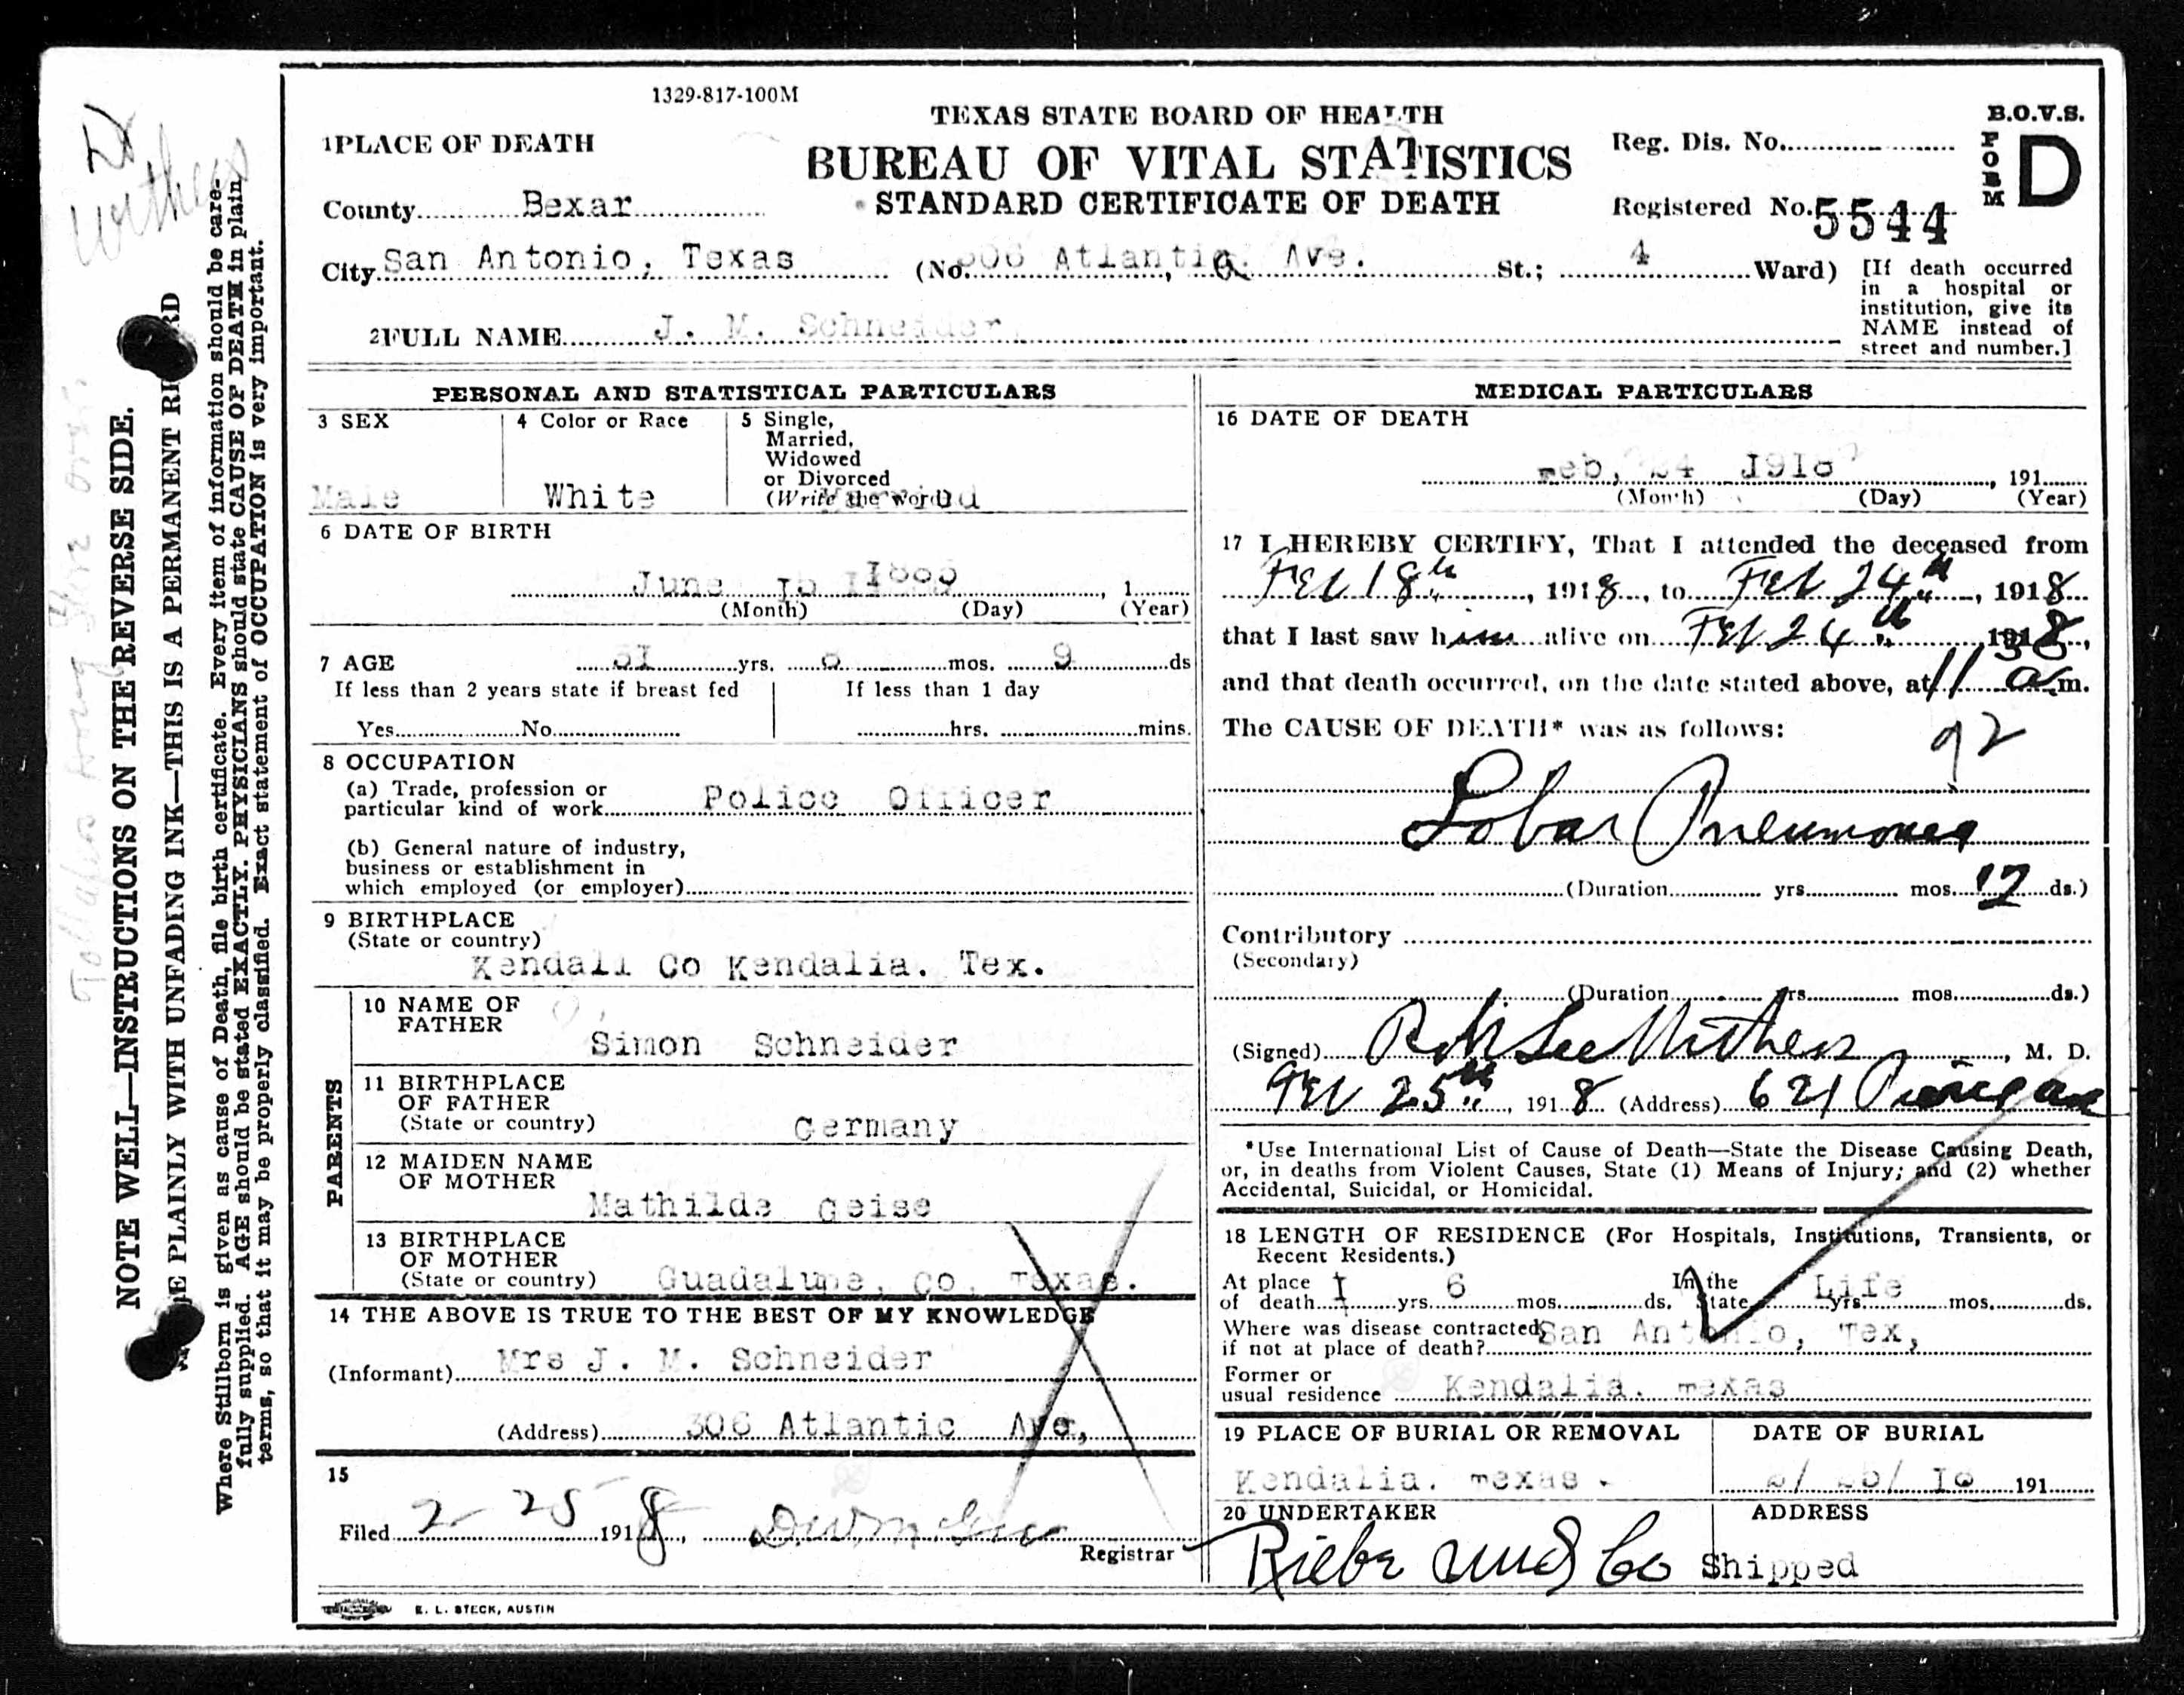 1329-817-100M
TEXAS STATE BOARD OF HEALTH
BUREAU OF VITAL STATISTICS
STANDARD CERTIFICATE OF DEATH
B.O.V.S.
FORM D
Reg. Dis. No.
Registered No. 5544
1 PLACE OF DEATH
County Bexar
City San Antonio, Texas (No. 306 Atlantic Ave. St.; 4 Ward)
[If death occurred
in a hospital or
institution, give its
NAME instead of
street and number.]
2 FULL NAME J. M. Schneider
PERSONAL AND STATISTICAL PARTICULARS
3 SEX
Male
4 Color or Race
White
5 Single,
Married,
Widowed
or Divorced
(Write the word)
6 DATE OF BIRTH
June 15
(Month) (Day) (Year)
7 AGE yrs. mos. 9 ds
If less than 2 years state if breast fed
Yes No
If less than 1 day
hrs. mins.
8 OCCUPATION
(a) Trade, profession or
particular kind of work Police Officer
(b) General nature of industry,
business or establishment in
which employed (or employer)
9 BIRTHPLACE
(State or country)
Kendall Co Kendalia. Tex.
PARENTS
10 NAME OF
FATHER
Simon Schneider
11 BIRTHPLACE
OF FATHER
(State or country) Germany
12 MAIDEN NAME
OF MOTHER
Mathilde Geise
13 BIRTHPLACE
OF MOTHER
(State or country) Guadalupe, Co, Texas.
14 THE ABOVE IS TRUE TO THE BEST OF MY KNOWLEDGE
(Informant) Mrs J. M. Schneider
(Address) 306 Atlantic Ave,
15
Filed 2 25 1918,
Registrar
E. L. STECK, AUSTIN
MEDICAL PARTICULARS
16 DATE OF DEATH
Feb, 24 1918, 191
(Month) (Day) (Year)
17 I HEREBY CERTIFY, That I attended the deceased from
Feb 18th, 1918, to Feb 24th, 1918
that I last saw him alive on Feb 24th 1918,
and that death occurred, on the date stated above, at 11 a m.
The CAUSE OF DEATH* was as follows:
92
Lobar Pneumonia
(Duration yrs. mos. 12 ds.)
Contributory
(Secondary)
(Duration yrs. mos. ds.)
(Signed) Lee Withers, M. D.
Feb 25th, 1918 (Address) 621
*Use International List of Cause of Death—State the Disease Causing Death,
or, in deaths from Violent Causes, State (1) Means of Injury; and (2) whether
Accidental, Suicidal, or Homicidal.
18 LENGTH OF RESIDENCE (For Hospitals, Institutions, Transients, or
Recent Residents.)
At place
of death 1 yrs. 6 mos. ds.
In the
State Life yrs. mos. ds.
Where was disease contracted San Antonio, Tex,
if not at place of death?
Former or
usual residence Kendalia. Texas
19 PLACE OF BURIAL OR REMOVAL
Kendalia. Texas.
DATE OF BURIAL
191
20 UNDERTAKER
Riebe Und Co
ADDRESS
Shipped
NOTE WELL—INSTRUCTIONS ON THE REVERSE SIDE.
PLAINLY WITH UNFADING INK—THIS IS A PERMANENT
Where Stillborn is given as cause of Death, file birth certificate. Every item of information should be care-
fully supplied. AGE should be stated EXACTLY. PHYSICIANS should state CAUSE OF DEATH in plain
terms, so that it may be properly classified. Exact statement of OCCUPATION is very important.
Withers